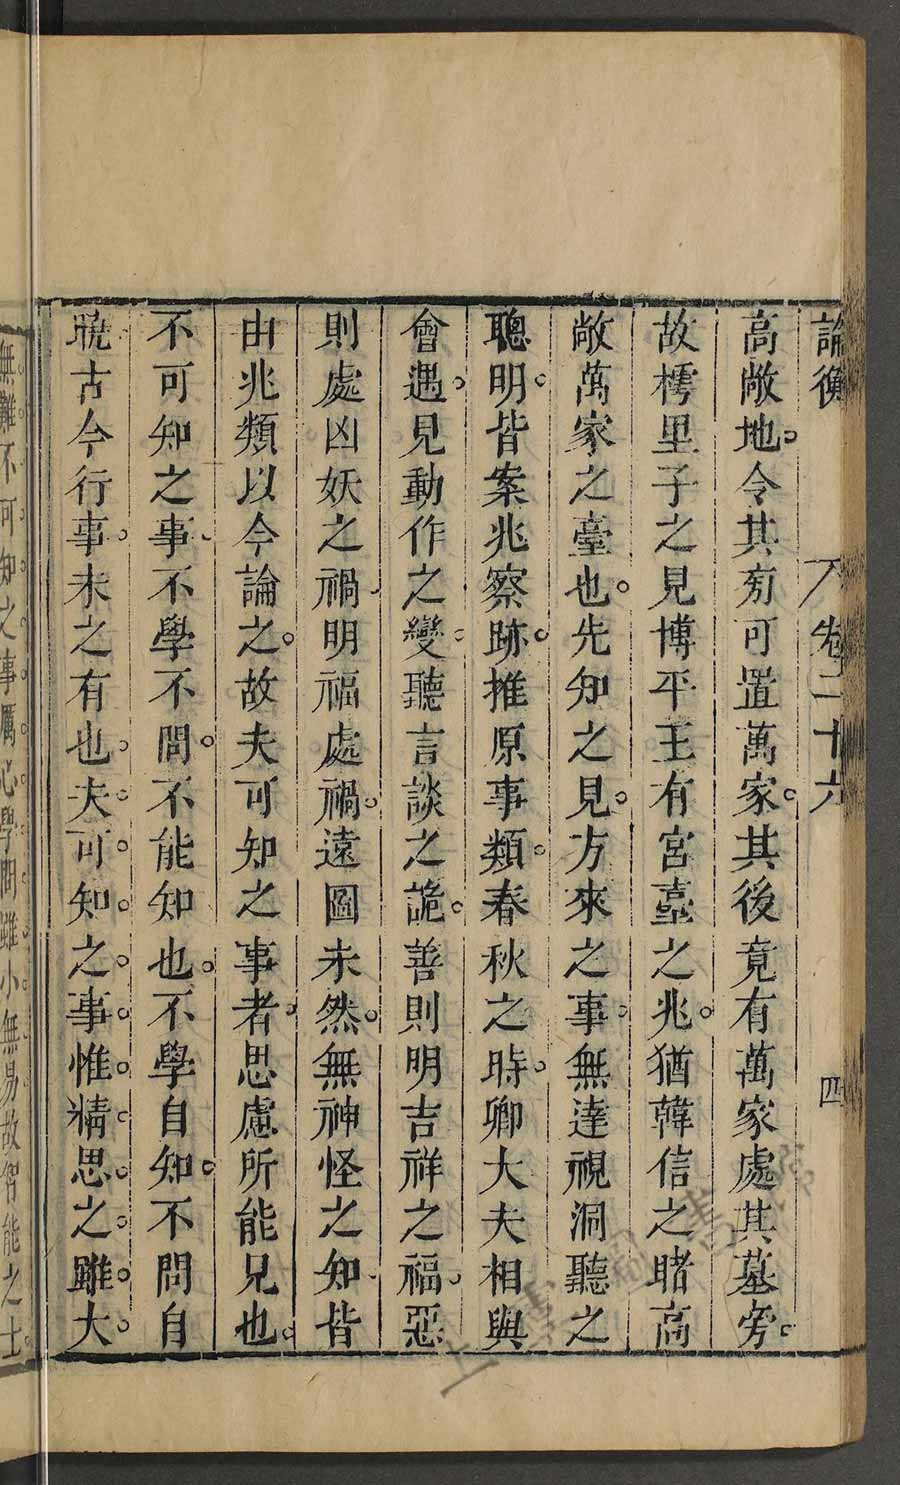 論衡 卷二十六 四
高敞地令其㫄可置萬家其後竟有萬家處其墓旁
故樗里子之見博平王有宮臺之兆猶韓信之睹高
敞萬家之臺也先知之見方來之事無達視洞聽之
聰明皆案兆察跡推原事類春秋之時卿大夫相與
會遇見動作之變聽言談之詭善則明吉祥之福惡
則處凶妖之禍明福處禍遠圖未然無神怪之知皆
由兆類以今論之故夫可知之事者思慮所能見也
不可知之事不學不問不能知也不學自知不問自
曉古今行事未之有也夫可知之事惟精思之雖大
無難不可知之事厲心學問雖小無易故智能之士